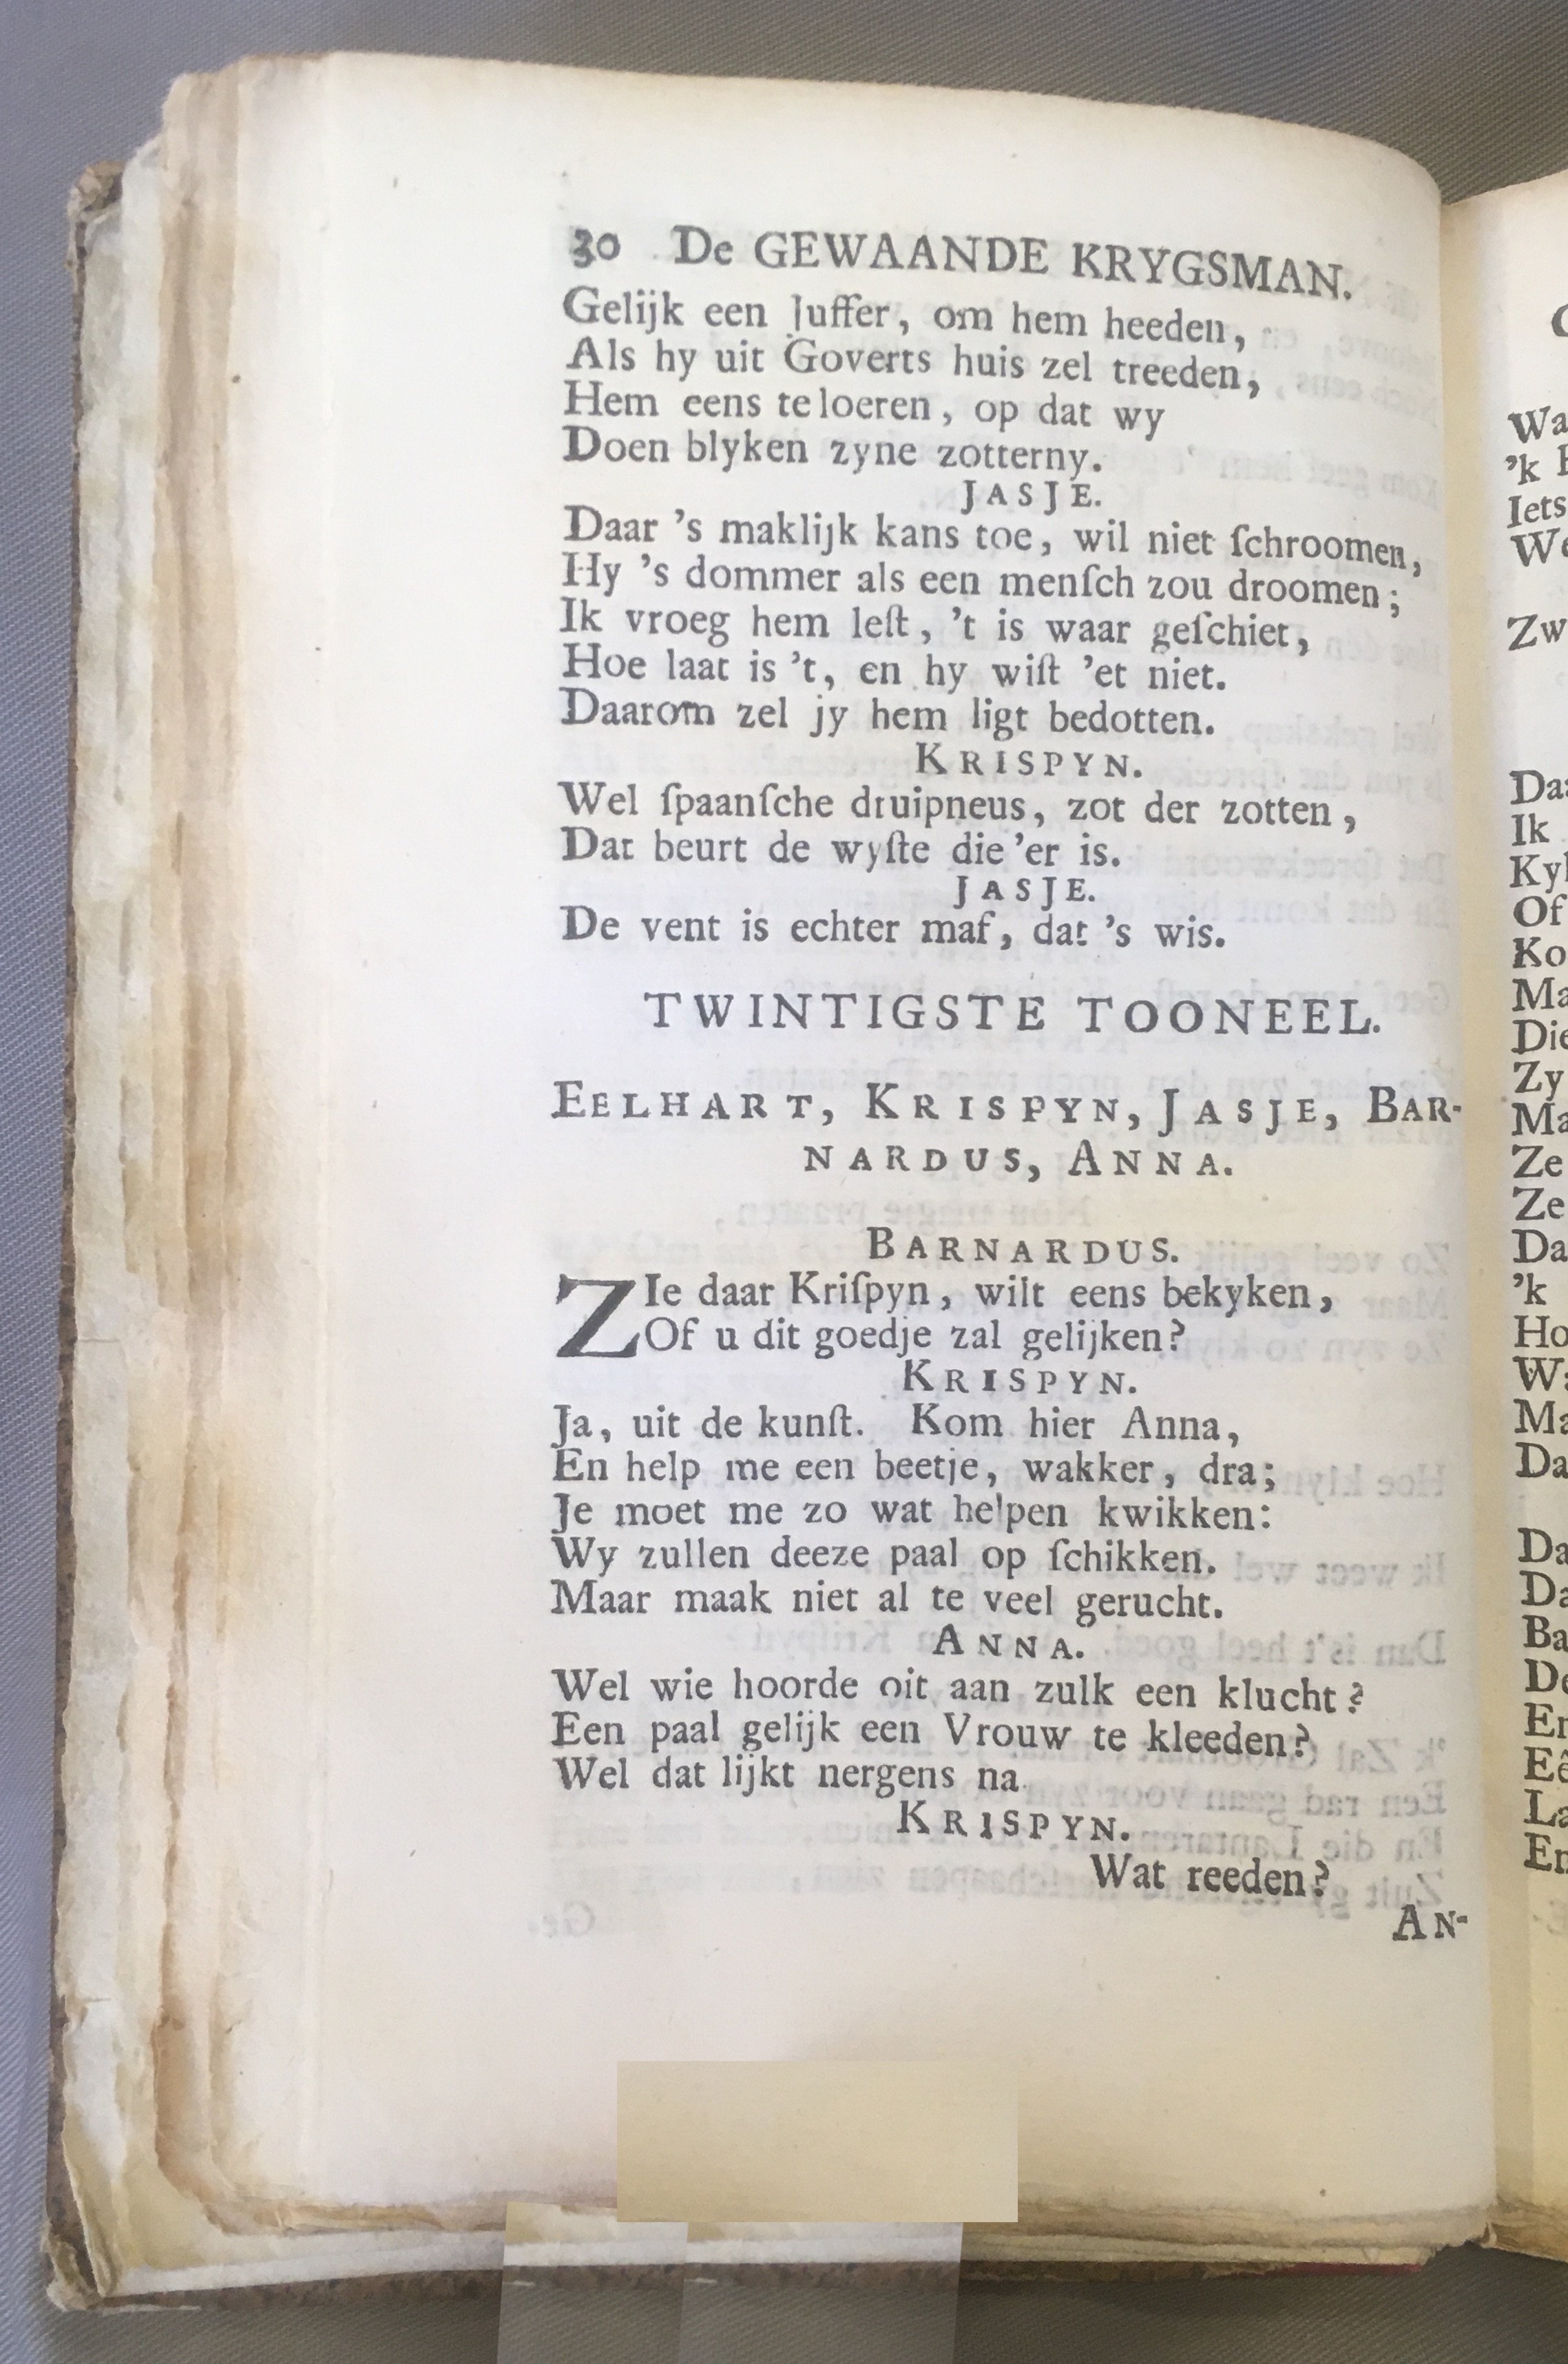 30 De GEWAANDE KRYGSMAN.
Gelijk een Juffer, om hem heeden,
Als hy uit Goverts huis zel treeden,
Hem eens te loeren, op dat wy
Doen blyken zyne zotterny.
JASJE.
Daar 's maklijk kans toe, wil niet ſchroomen,
Hy 's dommer als een menſch zou droomen;
Ik vroeg hem leſt, 't is waar geſchiet,
Hoe laat is 't, en hy wiſt 'et niet.
Daarom zel jy hem ligt bedotten.
KRISPYN.
Wel ſpaanſche druipneus, zot der zotten,
Dat beurt de wyſte die 'er is.
JASJE.
De vent is echter maf, dat 's wis.
TWINTIGSTE TOONEEL.
EELHART, KRISPYN, JASJE, BAR-
NARDUS, ANNA.
BARNARDUS.
ZIe daar Kriſpyn, wilt eens bekyken,
Of u dit goedje zal gelijken?
KRISPYN.
Ja, uit de kunſt. Kom hier Anna,
En help me een beetje, wakker, dra;
Je moet me zo wat helpen kwikken:
Wy zullen deeze paal op ſchikken.
Maar maak niet al te veel gerucht.
ANNA.
Wel wie hoorde oit aan zulk een klucht?
Een paal gelijk een Vrouw te kleeden?
Wel dat lijkt nergens na.
KRISPYN.
Wat reeden?
AN-
Wa
'k
Iets
We
Zw
Daa
Ik
Kyk
Of
Ko
Ma
Die
Zy
Ma
Ze
Ze
Da
'k
Ho
Wa
Ma
Da
Da
Da
Ba
De
En
Eê
La
En